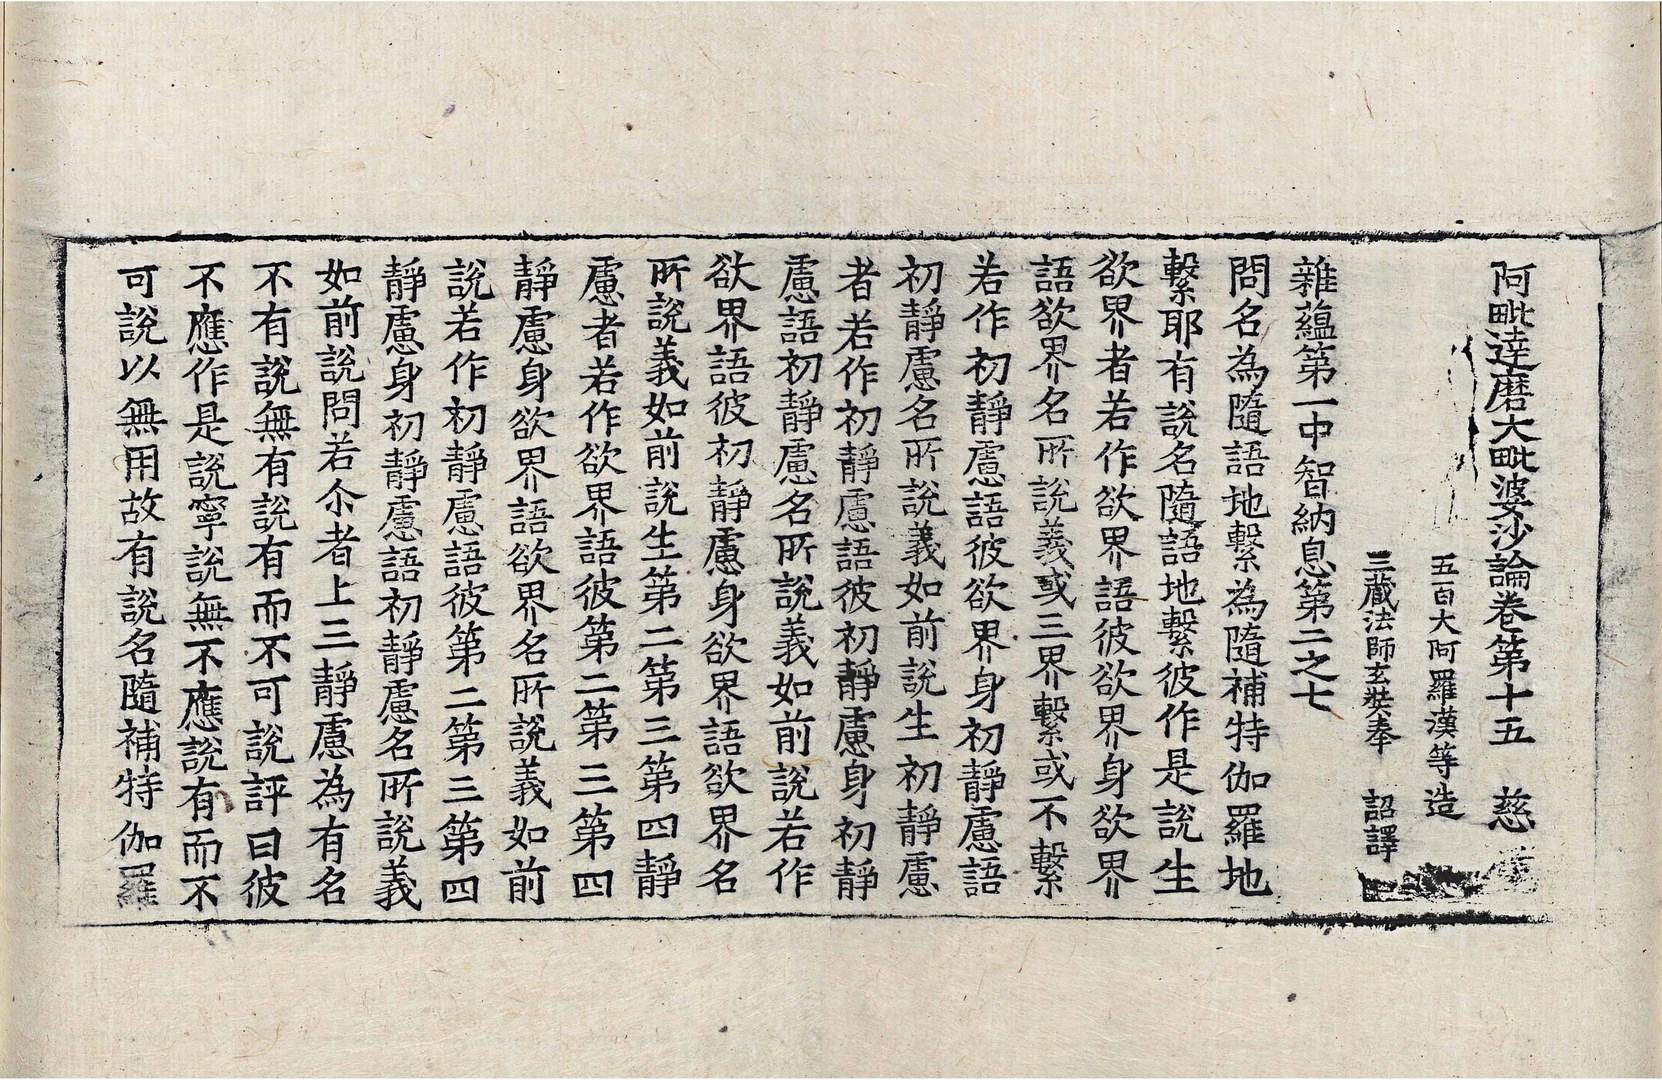 阿毗達磨大毗婆沙論卷第十五 慈
五百大阿羅漢等造
三藏法師玄奘奉 詔譯
雜蘊第一中智納息第二之七
問名為隨語地繫為隨補特伽羅地
繫耶有說名隨語地繫彼作是說生
欲界者若作欲界語彼欲界身欲界
語欲界名所說義或三界繫或不繫
若作初靜慮語彼欲界身初靜慮語
初靜慮名所說義如前說生初靜慮
者若作初靜慮語彼初靜慮身初靜
慮語初靜慮名所說義如前說若作
欲界語彼初靜慮身欲界語欲界名
所說義如前說生第二第三第四靜
慮者若作欲界語彼第二第三第四
靜慮身欲界語欲界名所說義如前
說若作初靜慮語彼第二第三第四
靜慮身初靜慮語初靜慮名所說義
如前說問若尒者上三靜慮為有名
不有說無有說有而不可說評曰彼
不應作是說寧說無不應說有而不
可說以無用故有說名隨補特伽羅